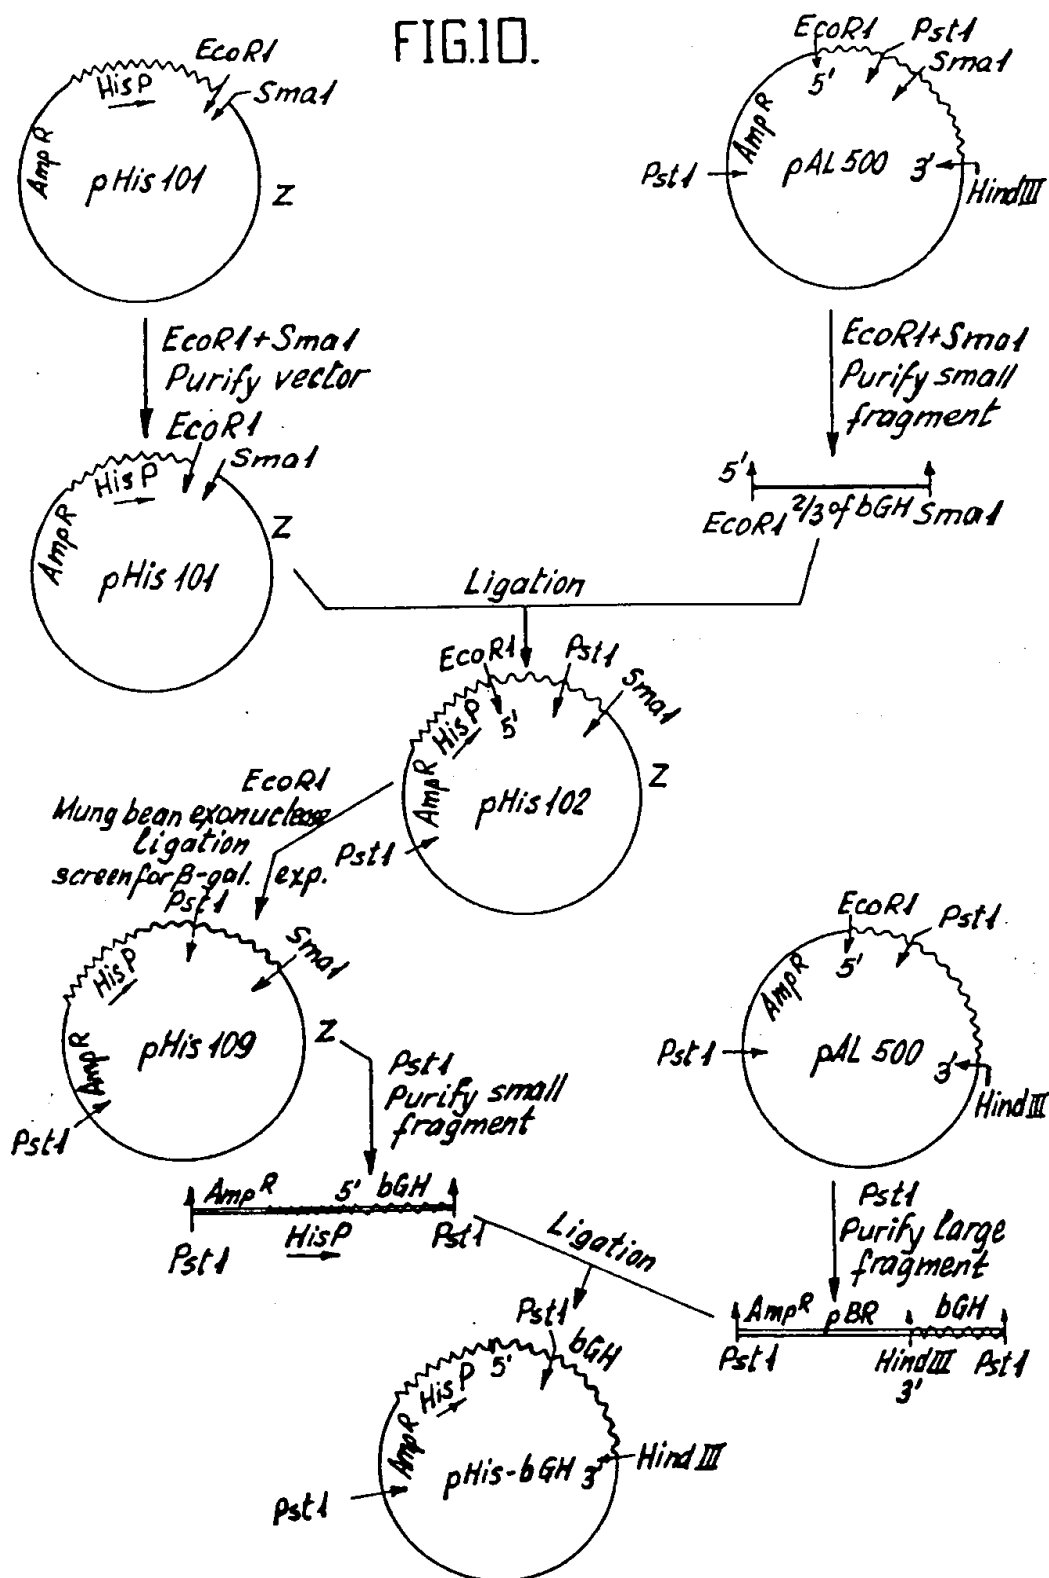 FIG.10.
EcoR1
HisP
Sma1
AmpR
pHis 101
Z
EcoR1
Pst1
5'
Sma1
AmpR
Pst1
pAL 500
3'
Hind III
EcoR1+Sma1
Purify vector
EcoR1+Sma1
Purify small
fragment
EcoR1
Sma1
HisP
AmpR
Z
pHis 101
5'
EcoR1 2/3 of bGH Sma1
Ligation
EcoR1
Pst1
Sma1
HisP
5'
AmpR
Z
pHis 102
Pst1
EcoR1
Mung bean exonuclease
Ligation
screen for β-gal. exp.
Pst1
Sma1
HisP
AmpR
pHis 109
Z
Pst1
EcoR1
Pst1
5'
AmpR
Pst1
pAL 500
3'
Hind III
Pst1
Purify small
fragment
AmpR 5' bGH
Pst1 HisP Pst1
Pst1
Purify large
fragment
AmpR pBR bGH
Pst1 Hind III Pst1
3'
Ligation
Pst1
bGH
5'
HisP
AmpR
pHis-bGH 3'
Hind III
Pst1